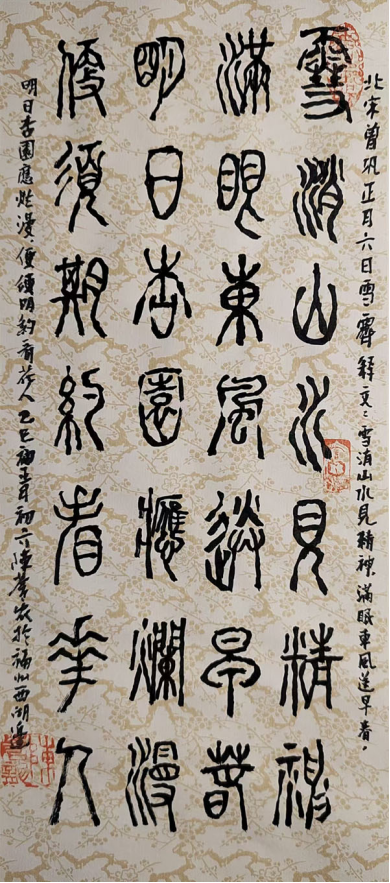 北宋曾巩正月六日雪霽 釋文：雪消山水見精神，滿眼東風送早春，
雪消山水見精神
滿眼東風送早春
明日杏園應爛漫
便須期約看華人
明日杏園應爛漫，便須期約看花人 乙巳正月初六陳於福州西湖邊